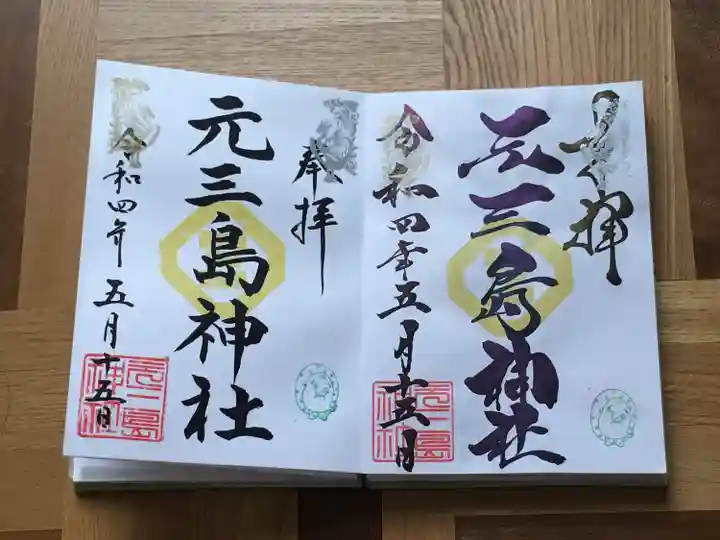 奉拝
元三島神社
令和四年五月十五日
拝
元三島神社
令和四年五月十五日
元三島神社
元三島神社